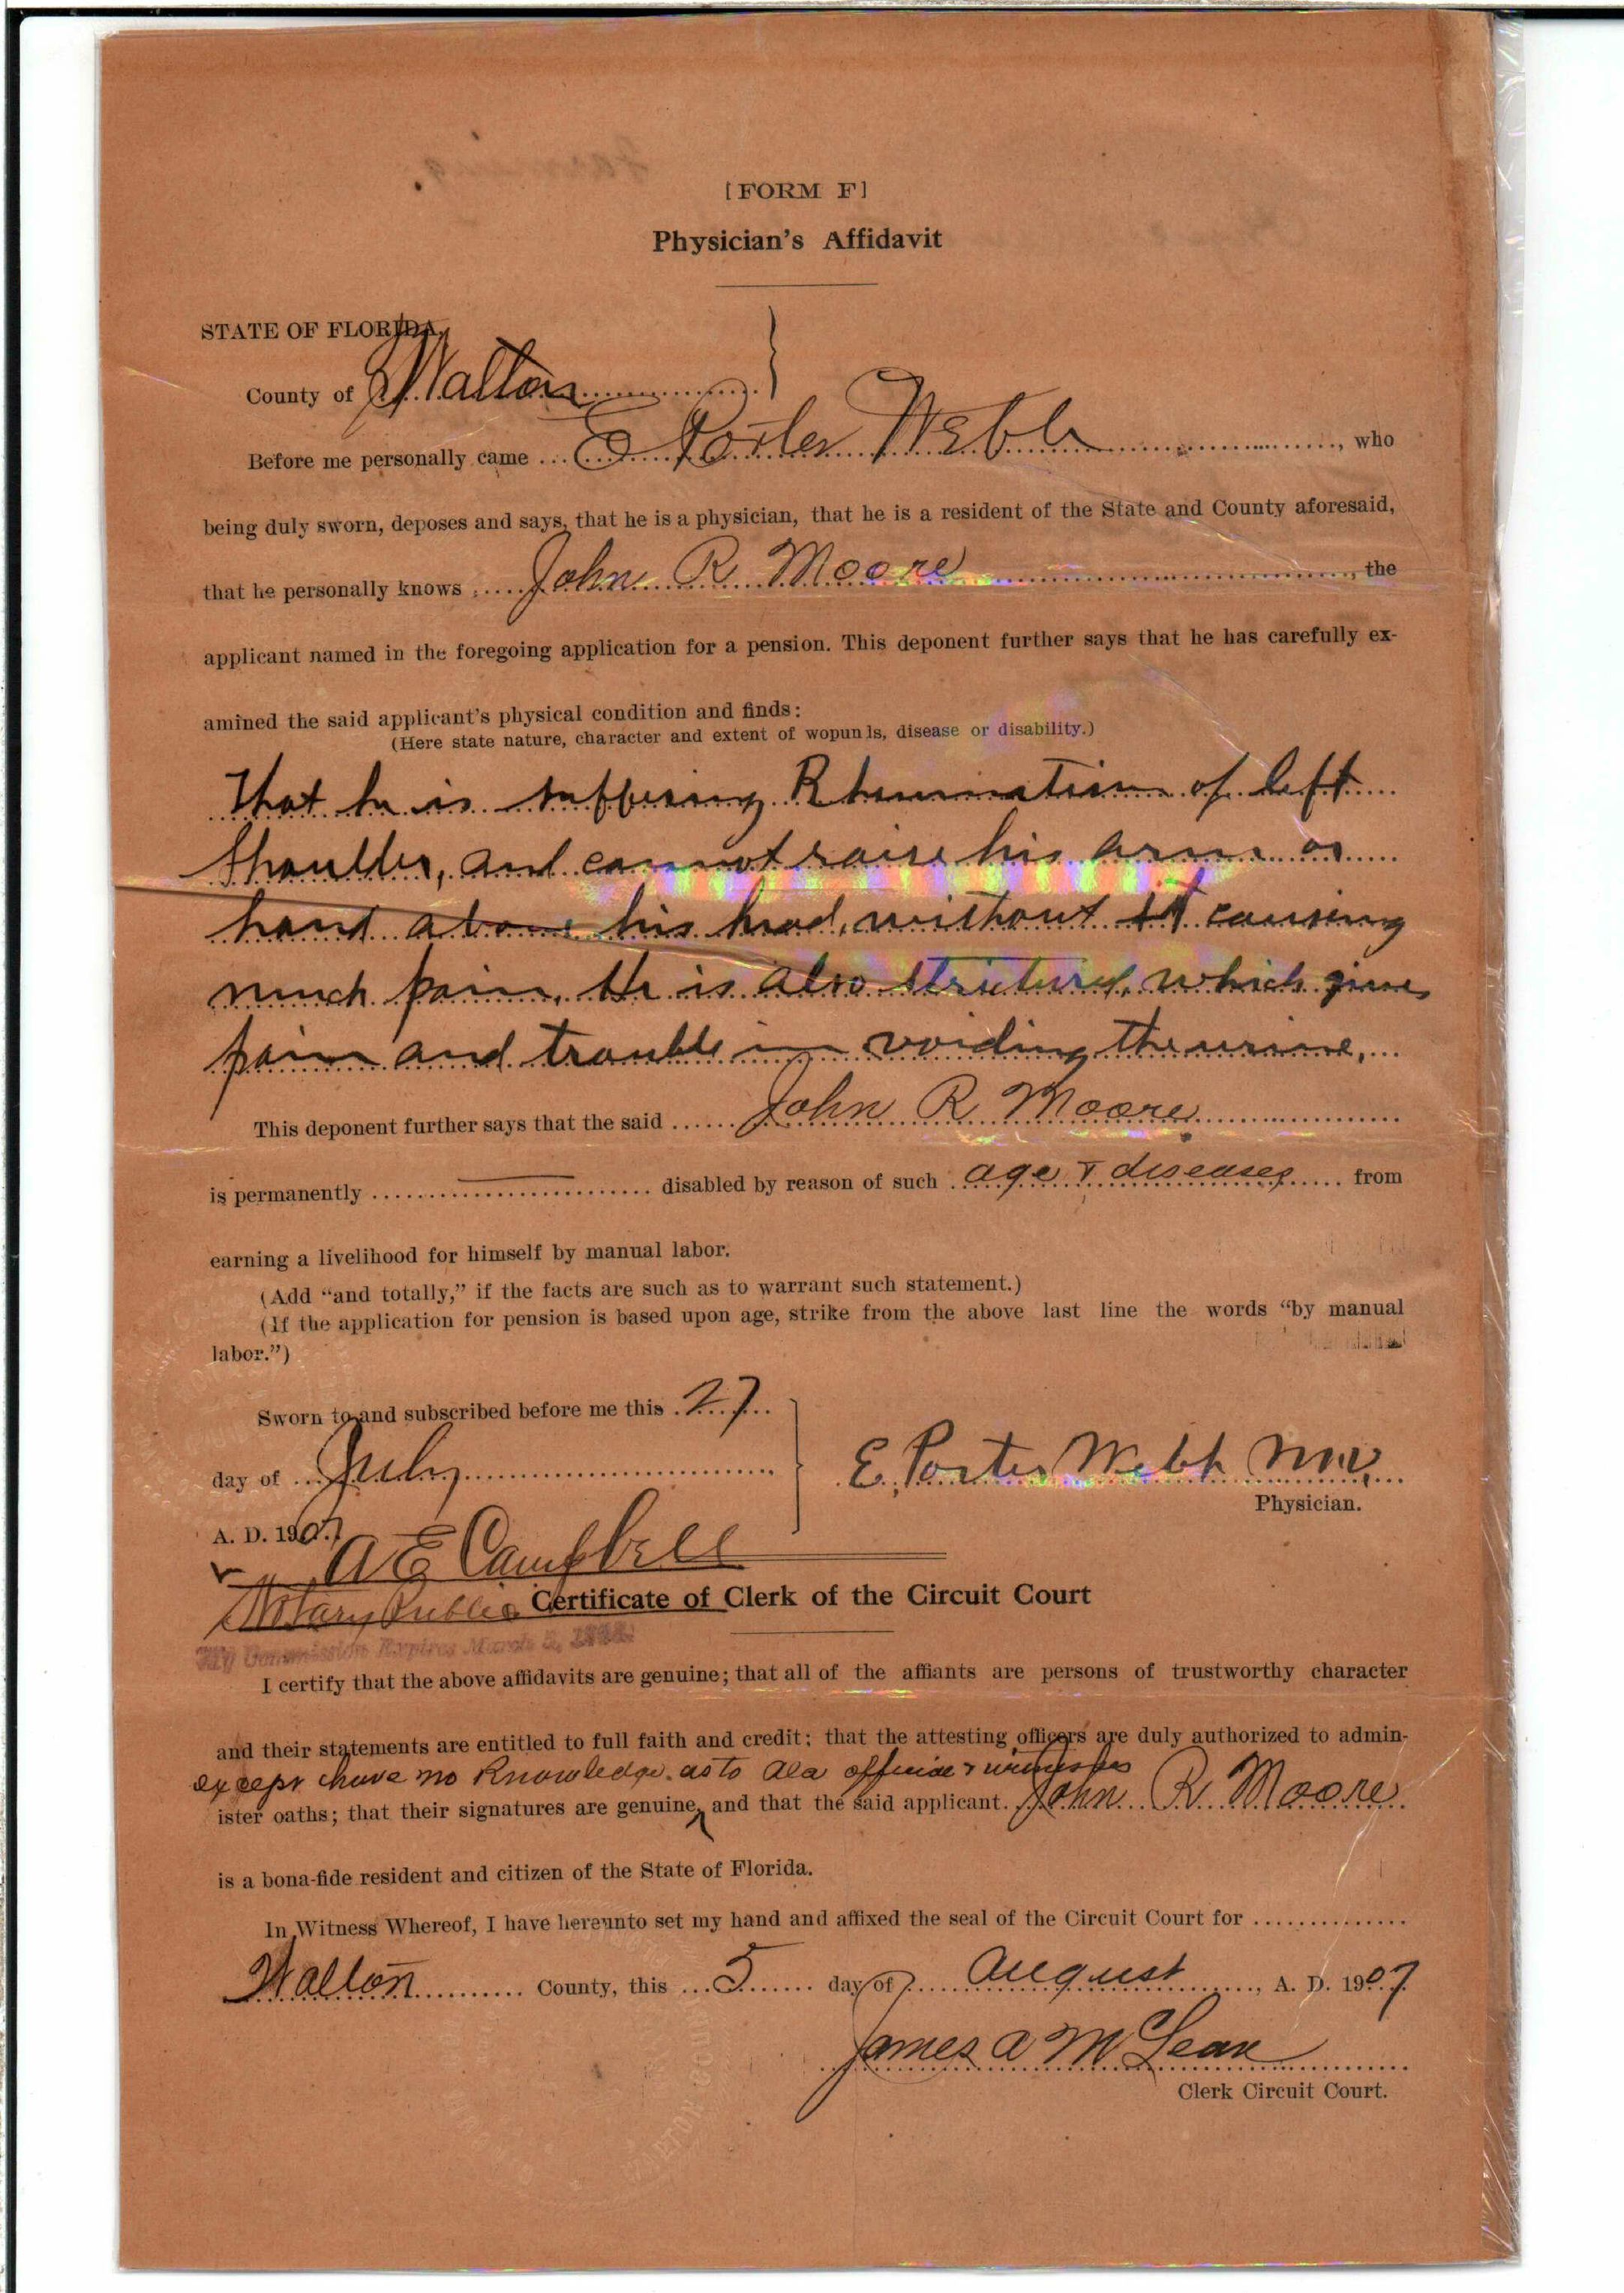 [FORM F]
Physician's Affidavit
STATE OF FLORIDA,
County of Walton
Before me personally came E Porter Webb, who
being duly sworn, deposes and says, that he is a physician, that he is a resident of the State and County aforesaid,
that he personally knows John R. Moore, the
applicant named in the foregoing application for a pension. This deponent further says that he has carefully ex-
amined the said applicant's physical condition and finds:
(Here state nature, character and extent of wopunls, disease or disability.)
That he is suffering Rheumatism of left
shoulder, and cannot raise his arm or
hand above his head, without it causing
much pain. He is also strictured, which gives
pain and trouble in voiding the urine.
This deponent further says that the said John R. Moore
is permanently disabled by reason of such age & diseases from
earning a livelihood for himself by manual labor.
(Add "and totally," if the facts are such as to warrant such statement.)
(If the application for pension is based upon age, strike from the above last line the words "by manual
labor.")
Sworn to and subscribed before me this 27
day of July
E. Porter Webb M.D.
Physician.
A. D. 1907
A E Campbell
Notary Public
Certificate of Clerk of the Circuit Court
My Commission Expires March
I certify that the above affidavits are genuine; that all of the affiants are persons of trustworthy character
and their statements are entitled to full faith and credit; that the attesting officers are duly authorized to admin-
except have no Knowledge as to Ala officer & witnesses
ister oaths; that their signatures are genuine, and that the said applicant. John R. Moore
is a bona-fide resident and citizen of the State of Florida.
In Witness Whereof, I have hereunto set my hand and affixed the seal of the Circuit Court for
Walton County, this 5 day of August, A. D. 1907
James A McLean
Clerk Circuit Court.